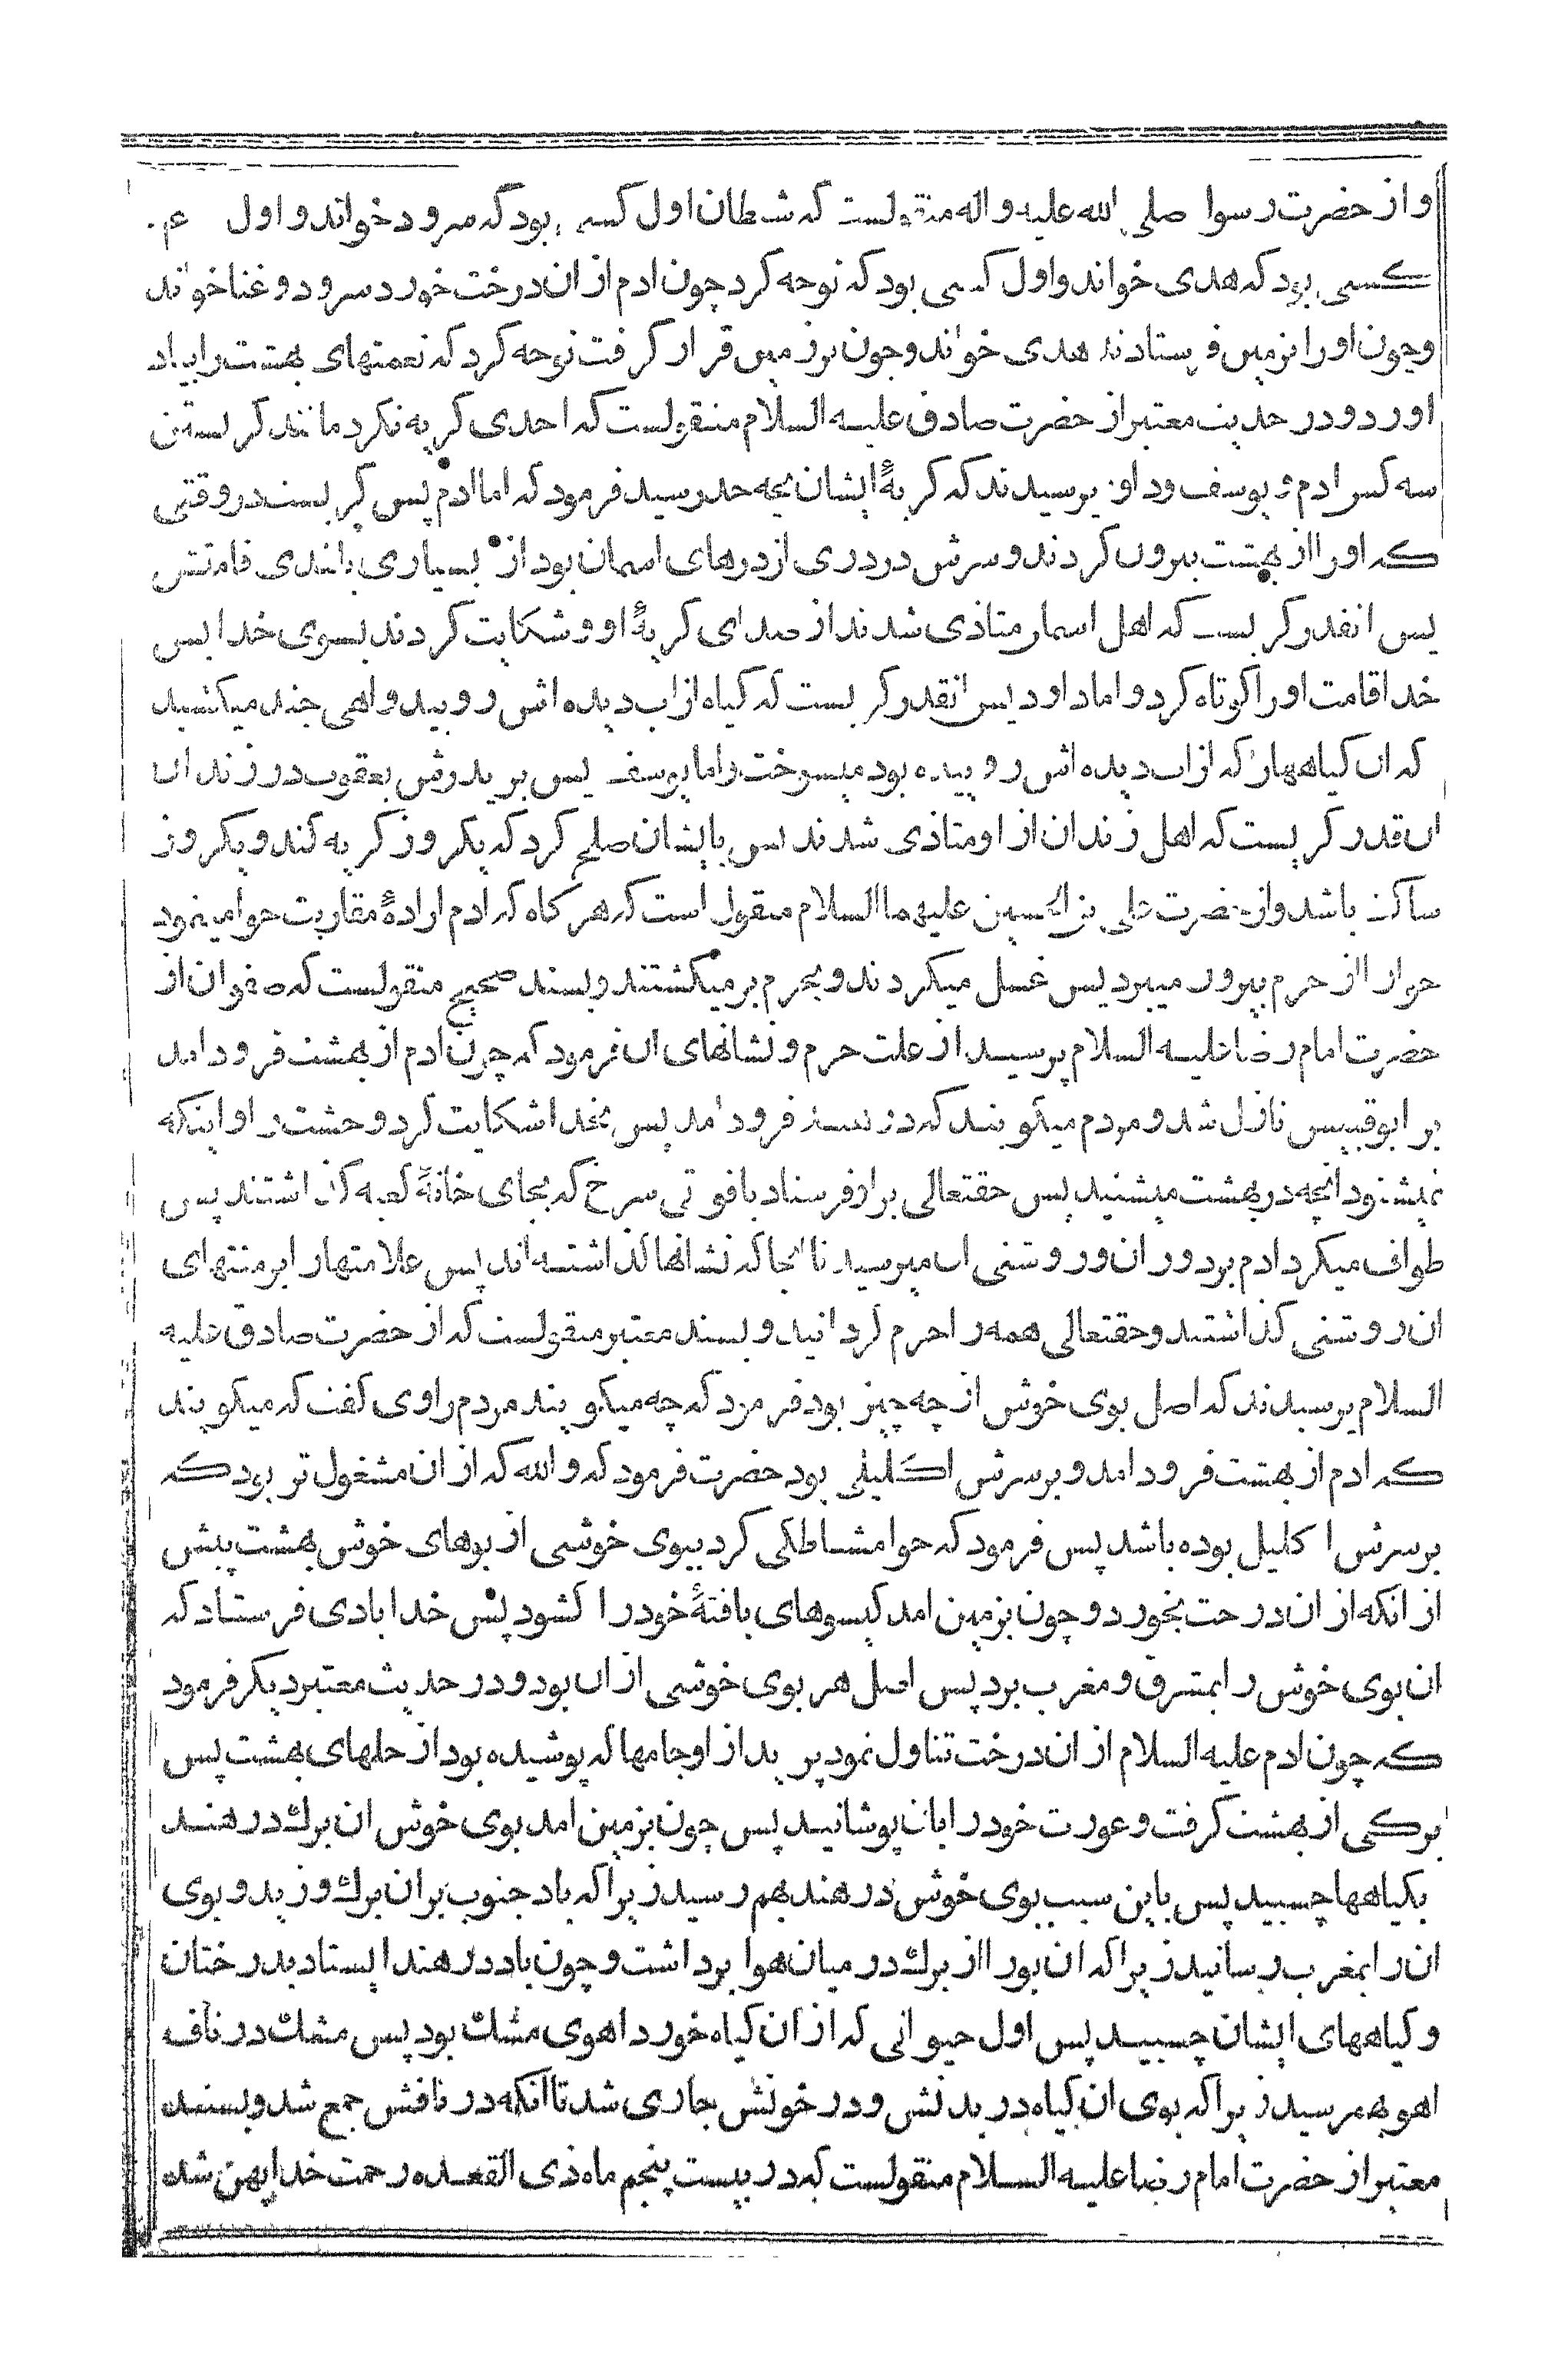 و از حضرت رسول صلی الله علیه و اله منقولست که شیطان اول کسی بود که سرود خواند و اول
کسی بود که هدی خواند و اول کسی بود که نوحه کرد چون ادم از ان درخت خورد سرود و غنا خواند
و چون او را بزمین فرستادند هدی خواند و چون بر زمین قرار کرفت نوحه کرد که نعمتهای بهشت را بیاد
اورد و در حدیث معتبر از حضرت صادق علیه السلام منقولست که احدی کریه نکرد مانند کریستن
سه کس ادم و یوسف و داود پرسیدند که کریهٔ ایشان بچه حد رسید فرمود که اما ادم پس کریست در وقتی
که او را از بهشت بیرون کردند و سرش در دری از درهای اسمان بود از بسیاری بلندی قامتش
پس انقدر کریست که اهل اسمان متاذی شدند از صدای کریهٔ او و شکایت کردند بسوی خدا پس
خدا قامت او را کوتاه کرد و اما داود پس انقدر کریست که کیاه از اب دیده اش روییده و اهی چند میکشید
که ان کیاهها را که از اب دیده اش روییده بود میسوخت و اما یوسف پس بر پدرش یعقوب در زندان
ان قدر کریست که اهل زندان از او متاذی شدند پس با ایشان صلح کرد که یکروز کریه کند و یکروز
ساکت باشد و از حضرت علی بن الحسین علیهما السلام منقول است که هر کاه که ادم ارادهٔ مقاربت حوا مینمود
حوا را از حرم بیرون میبرد پس غسل میکردند و بحرم بر میکشتند و بسند صحیح منقولست که صفوان از
حضرت امام رضا علیه السلام پرسید از علت حرم و نشانهای ان فرمود که چون ادم از بهشت فرود امد
بر ابو قبیس نازل شد و مردم میکویند که در هند فرود امد پس بخدا شکایت کرد وحشت را و اینکه
نمیشنود انچه در بهشت میشنید پس حقتعالی برای او فرستاد یاقوتی سرخ که بجای خانهٔ کعبه کذاشتند پس
طواف میکرد ادم بر دور ان و روشنی ان میرسید تا انجا که نشانها کذاشته اند پس علامتها را بر منتهای
ان روشنی کذاشتند و حقتعالی همه را حرم کردانید و بسند معتبر منقولست که از حضرت صادق علیه
السلام پرسیدند که اصل بوی خوش از چه چیز بود فرمود که چه میکویند مردم راوی کفت که میکویند
که ادم از بهشت فرود امد و بر سرش اکلیلی بود حضرت فرمود که والله که از ان مشغول تر بود که
بر سرش اکلیل بوده باشد پس فرمود که حوا مشاطکی کرد ببوی خوشی از بوهای خوش بهشت پیش
از انکه از ان درخت بخورد و چون بزمین امد کیسوهای بافتهٔ خود را کشود پس خدا بادی فرستاد که
ان بوی خوش را بمشرق و مغرب برد پس اصل هر بوی خوشی از ان بود و در حدیث معتبر دیکر فرمود
که چون ادم علیه السلام از ان درخت تناول نمود پرید از او جامها که پوشیده بود از حلهای بهشت پس
برکی از بهشت کرفت و عورت خود را بان پوشانید پس چون بزمین امد بوی خوش ان برك در هند
بکیاهها چسبید پس باین سبب بوی خوش در هند بهم رسید زیرا که باد جنوب بر ان برك وزید و بوی
ان را بمغرب رسانید زیرا که ان بو را از برك در میان هوا برداشت و چون باد در هند ایستاد بدرختان
و کیاههای ایشان چسبید پس اول حیوانی که از ان کیاه خورد اهوی مشك بود پس مشك در ناف
اهو بهم رسید زیرا که بوی ان کیاه در بدنش و در خونش جاری شد تا انکه در نافش جمع شد و بسند
معتبر از حضرت امام رضا علیه السلام منقولست که در بیست پنجم ماه ذی القعده رحمت خدا پهن شده